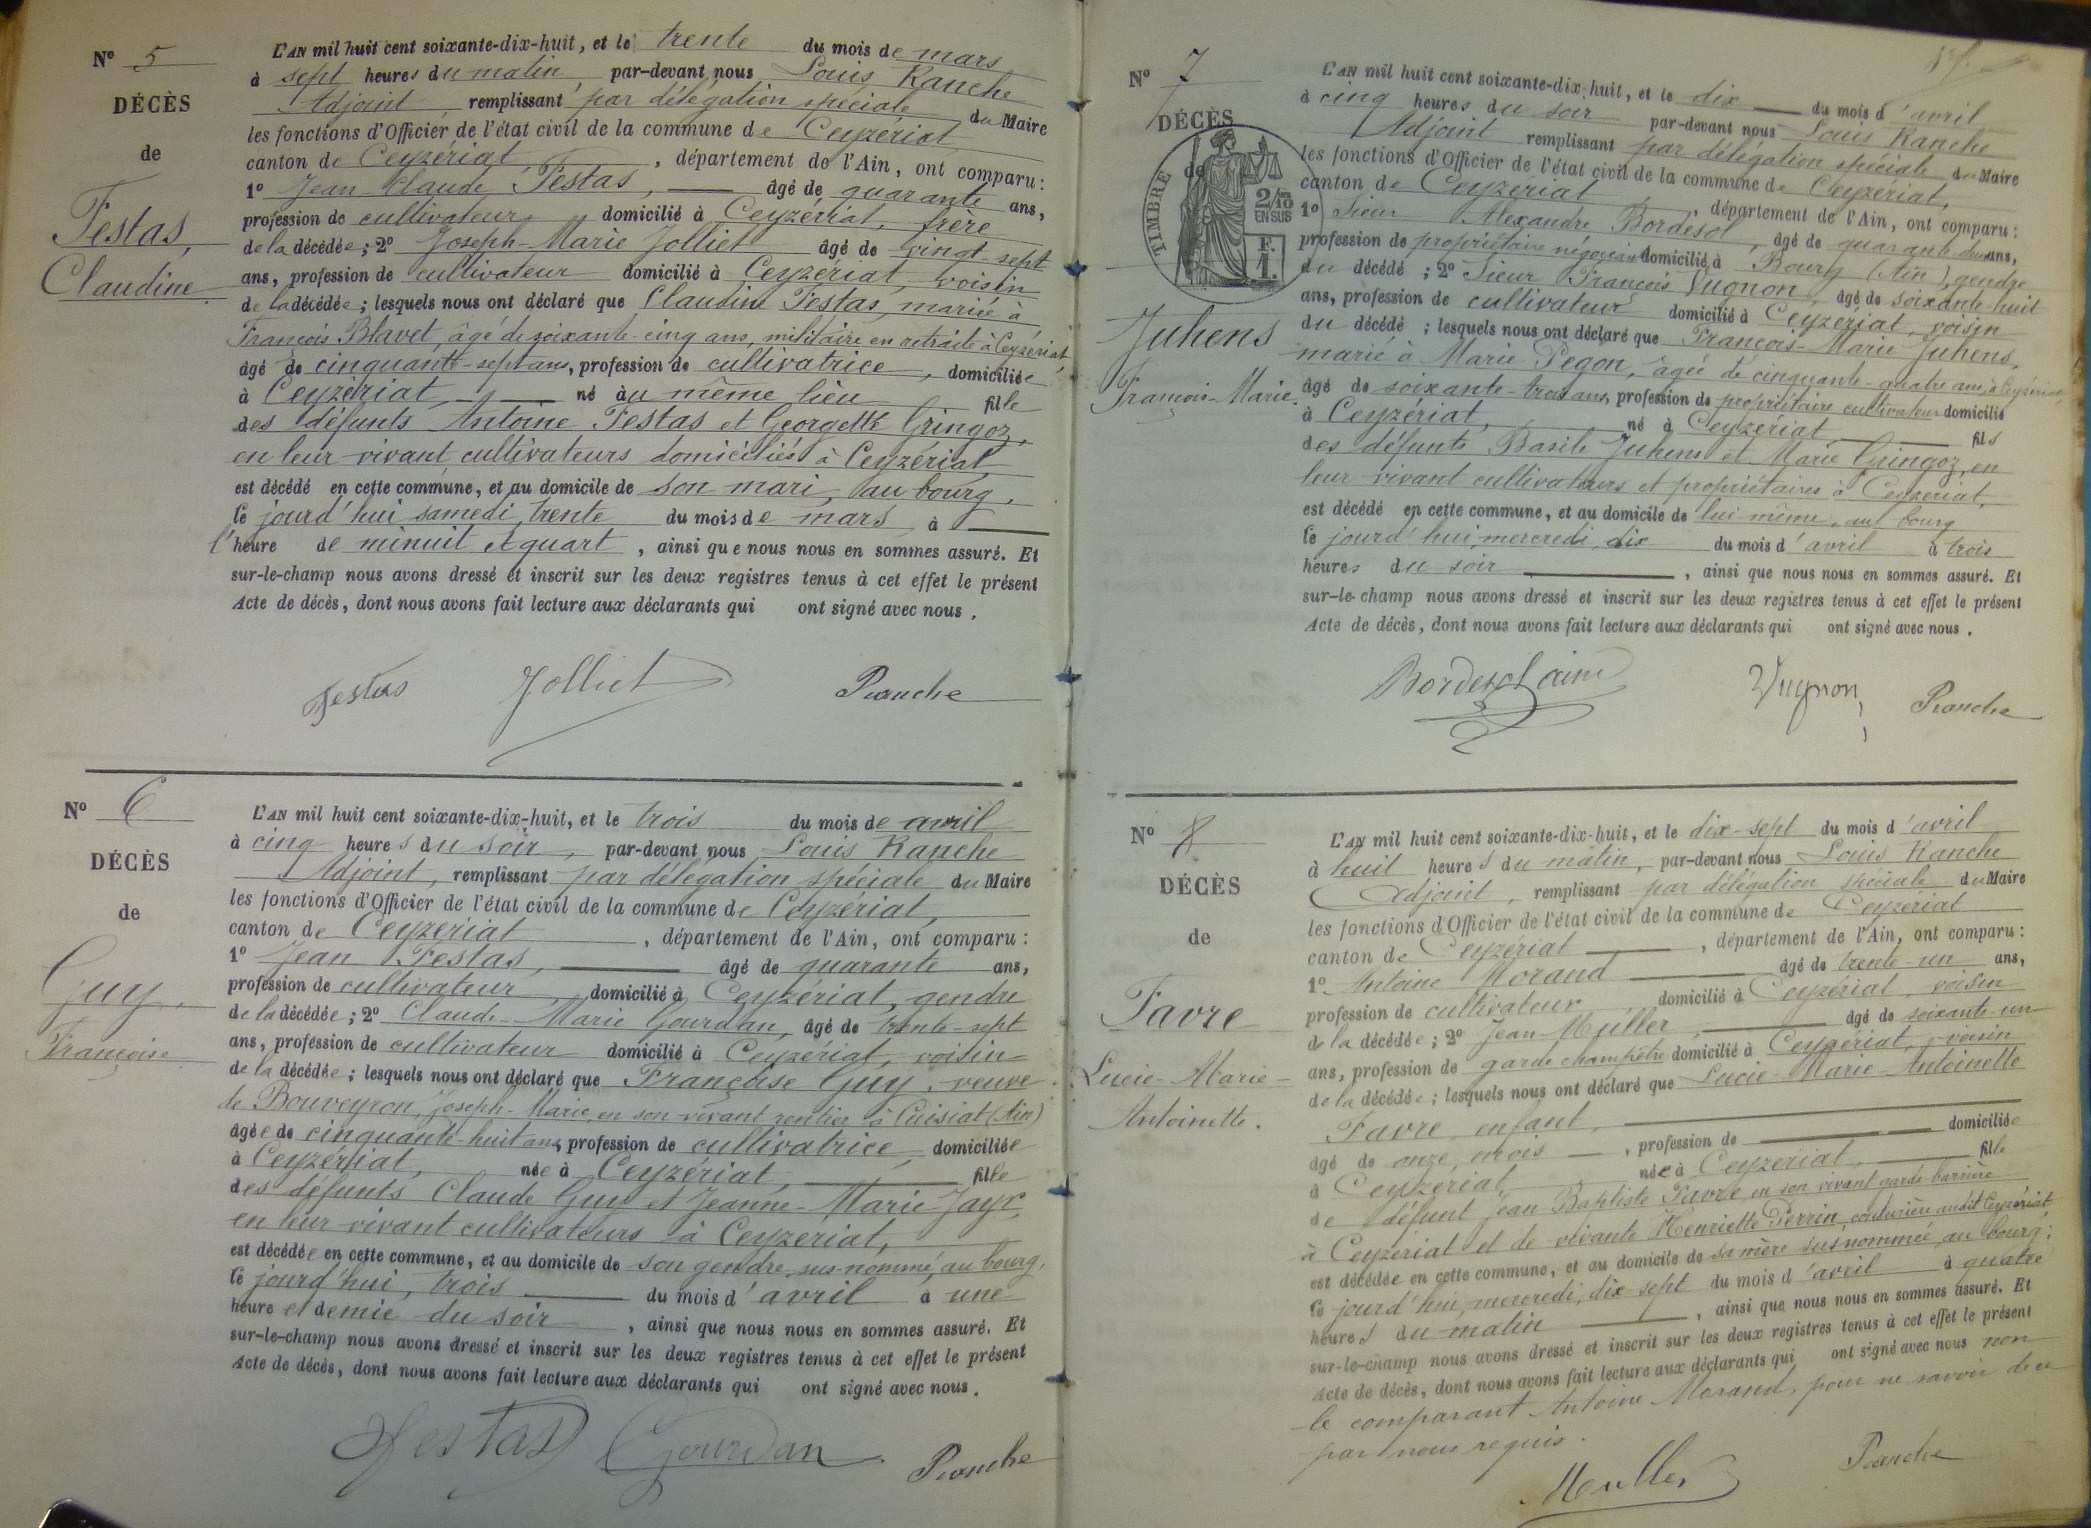 Nº 5
DÉCÈS
de
Festas,
Claudine
L'AN mil huit cent soixante-dix-huit, et le trente du mois de mars
à sept heures du matin, par-devant nous Louis Ranche
Adjoint remplissant par délégation spéciale du Maire
les fonctions d'Officier de l'état civil de la commune de Ceyzériat
canton de Ceyzériat, département de l'Ain, ont comparu :
1º Jean Claude Festas, âgé de quarante ans,
profession de cultivateur, domicilié à Ceyzériat, frère
de la décédée ; 2º Joseph-Marie Jolliet âgé de vingt-sept
ans, profession de cultivateur domicilié à Ceyzériat, voisin
de la décédée ; lesquels nous ont déclaré que Claudine Festas, mariée à
François Blavet, âgé de soixante-cinq ans, militaire en retraite à Ceyzériat,
âgé de cinquante-sept ans, profession de cultivatrice, domiciliée
à Ceyzériat, né au même lieu fille
des défunts Antoine Festas et Georgette Gringoz,
en leur vivant cultivateurs domiciliés à Ceyzériat,
est décédé en cette commune, et au domicile de son mari, au bourg,
le jourd'hui samedi trente du mois de mars à
l'heure de minuit et quart, ainsi que nous nous en sommes assuré. Et
sur-le-champ nous avons dressé et inscrit sur les deux registres tenus à cet effet le présent
Acte de décès, dont nous avons fait lecture aux déclarants qui ont signé avec nous.
Festas Jolliet Ranche
Nº 6
DÉCÈS
de
Guy,
Françoise
L'AN mil huit cent soixante-dix-huit, et le trois du mois de avril
à cinq heures du soir, par-devant nous Louis Ranche
Adjoint, remplissant par délégation spéciale du Maire
les fonctions d'Officier de l'état civil de la commune de Ceyzériat,
canton de Ceyzériat, département de l'Ain, ont comparu :
1º Jean Festas, âgé de quarante ans,
profession de cultivateur, domicilié à Ceyzériat, gendre
de la décédée ; 2º Claude-Marie Gourdan, âgé de trente-sept
ans, profession de cultivateur domicilié à Ceyzériat, voisin
de la décédée ; lesquels nous ont déclaré que Françoise Guy, veuve
de Bouveyron, Joseph-Marie, en son vivant rentier à Cuisiat (Ain)
âgée de cinquante-huit ans, profession de cultivatrice, domiciliée
à Ceyzériat, née à Ceyzériat, fille
des défunts Claude Guy et Jeanne-Marie Jayr,
en leur vivant cultivateurs à Ceyzériat,
est décédée en cette commune, et au domicile de son gendre, sus-nommé, au bourg,
le jourd'hui, trois du mois d'avril à une
heure et demie du soir, ainsi que nous nous en sommes assuré. Et
sur-le-champ nous avons dressé et inscrit sur les deux registres tenus à cet effet le présent
Acte de décès, dont nous avons fait lecture aux déclarants qui ont signé avec nous.
Festas Gourdan Ranche
Nº 7
DÉCÈS
de
TIMBRE
2/10
EN SUS
F.
1.
Juhens
François-Marie
L'AN mil huit cent soixante-dix-huit, et le dix du mois d'avril
à cinq heures du soir par-devant nous Louis Ranche
Adjoint remplissant par délégation spéciale du Maire
les fonctions d'Officier de l'état civil de la commune de Ceyzériat,
canton de Ceyzériat, département de l'Ain, ont comparu :
1º Sieur Alexandre Bordesol, âgé de quarante-deux ans,
profession de propriétaire négociant domicilié à Bourg (Ain), gendre
du décédé ; 2º Sieur François Vugnon, âgé de soixante-huit
ans, profession de cultivateur domicilié à Ceyzériat, voisin
du décédé ; lesquels nous ont déclaré que François-Marie Juhens,
marié à Marie Pegon, âgée de cinquante-quatre ans, à Ceyzériat,
âgé de soixante-trois ans, profession de propriétaire cultivateur domicilié
à Ceyzériat, né à Ceyzériat, fils
des défunts Basile Juhens et Marie Gringoz, en
leur vivant cultivateurs et propriétaires à Ceyzériat,
est décédé en cette commune, et au domicile de lui-même, au bourg
le jourd'hui, mercredi, dix du mois d'avril à trois
heures du soir, ainsi que nous nous en sommes assuré. Et
sur-le-champ nous avons dressé et inscrit sur les deux registres tenus à cet effet le présent
Acte de décès, dont nous avons fait lecture aux déclarants qui ont signé avec nous.
Bordesol Vugnon Ranche
Nº 8
DÉCÈS
de
Favre
Lucie-Marie-
Antoinette.
L'AN mil huit cent soixante-dix-huit, et le dix-sept du mois d'avril
à huit heures du matin, par-devant nous Louis Ranche
Adjoint, remplissant par délégation spéciale du Maire
les fonctions d'Officier de l'état civil de la commune de Ceyzériat
canton de Ceyzériat, département de l'Ain, ont comparu :
1º Antoine Morand âgé de trente-un ans,
profession de cultivateur domicilié à Ceyzériat, voisin
de la décédée ; 2º Jean Müller, âgé de soixante-un
ans, profession de garde champêtre domicilié à Ceyzériat, voisin
de la décédée ; lesquels nous ont déclaré que Lucie-Marie-Antoinette
Favre, enfant,
âgé de onze mois, profession de domiciliée
à Ceyzériat née à Ceyzériat, fille
de défunt Jean Baptiste Favre en son vivant garde-barrière
à Ceyzériat et de vivante Henriette Perrin, couturière audit Ceyzériat
est décédée en cette commune, et au domicile de sa mère susnommée, au bourg ;
le jourd'hui, mercredi, dix-sept du mois d'avril à quatre
heures du matin, ainsi que nous nous en sommes assuré. Et
sur-le-champ nous avons dressé et inscrit sur les deux registres tenus à cet effet le présent
Acte de décès, dont nous avons fait lecture aux déclarants qui ont signé avec nous non
le comparant Antoine Morand, pour ne savoir de ce
par nous requis.
Muller Ranche